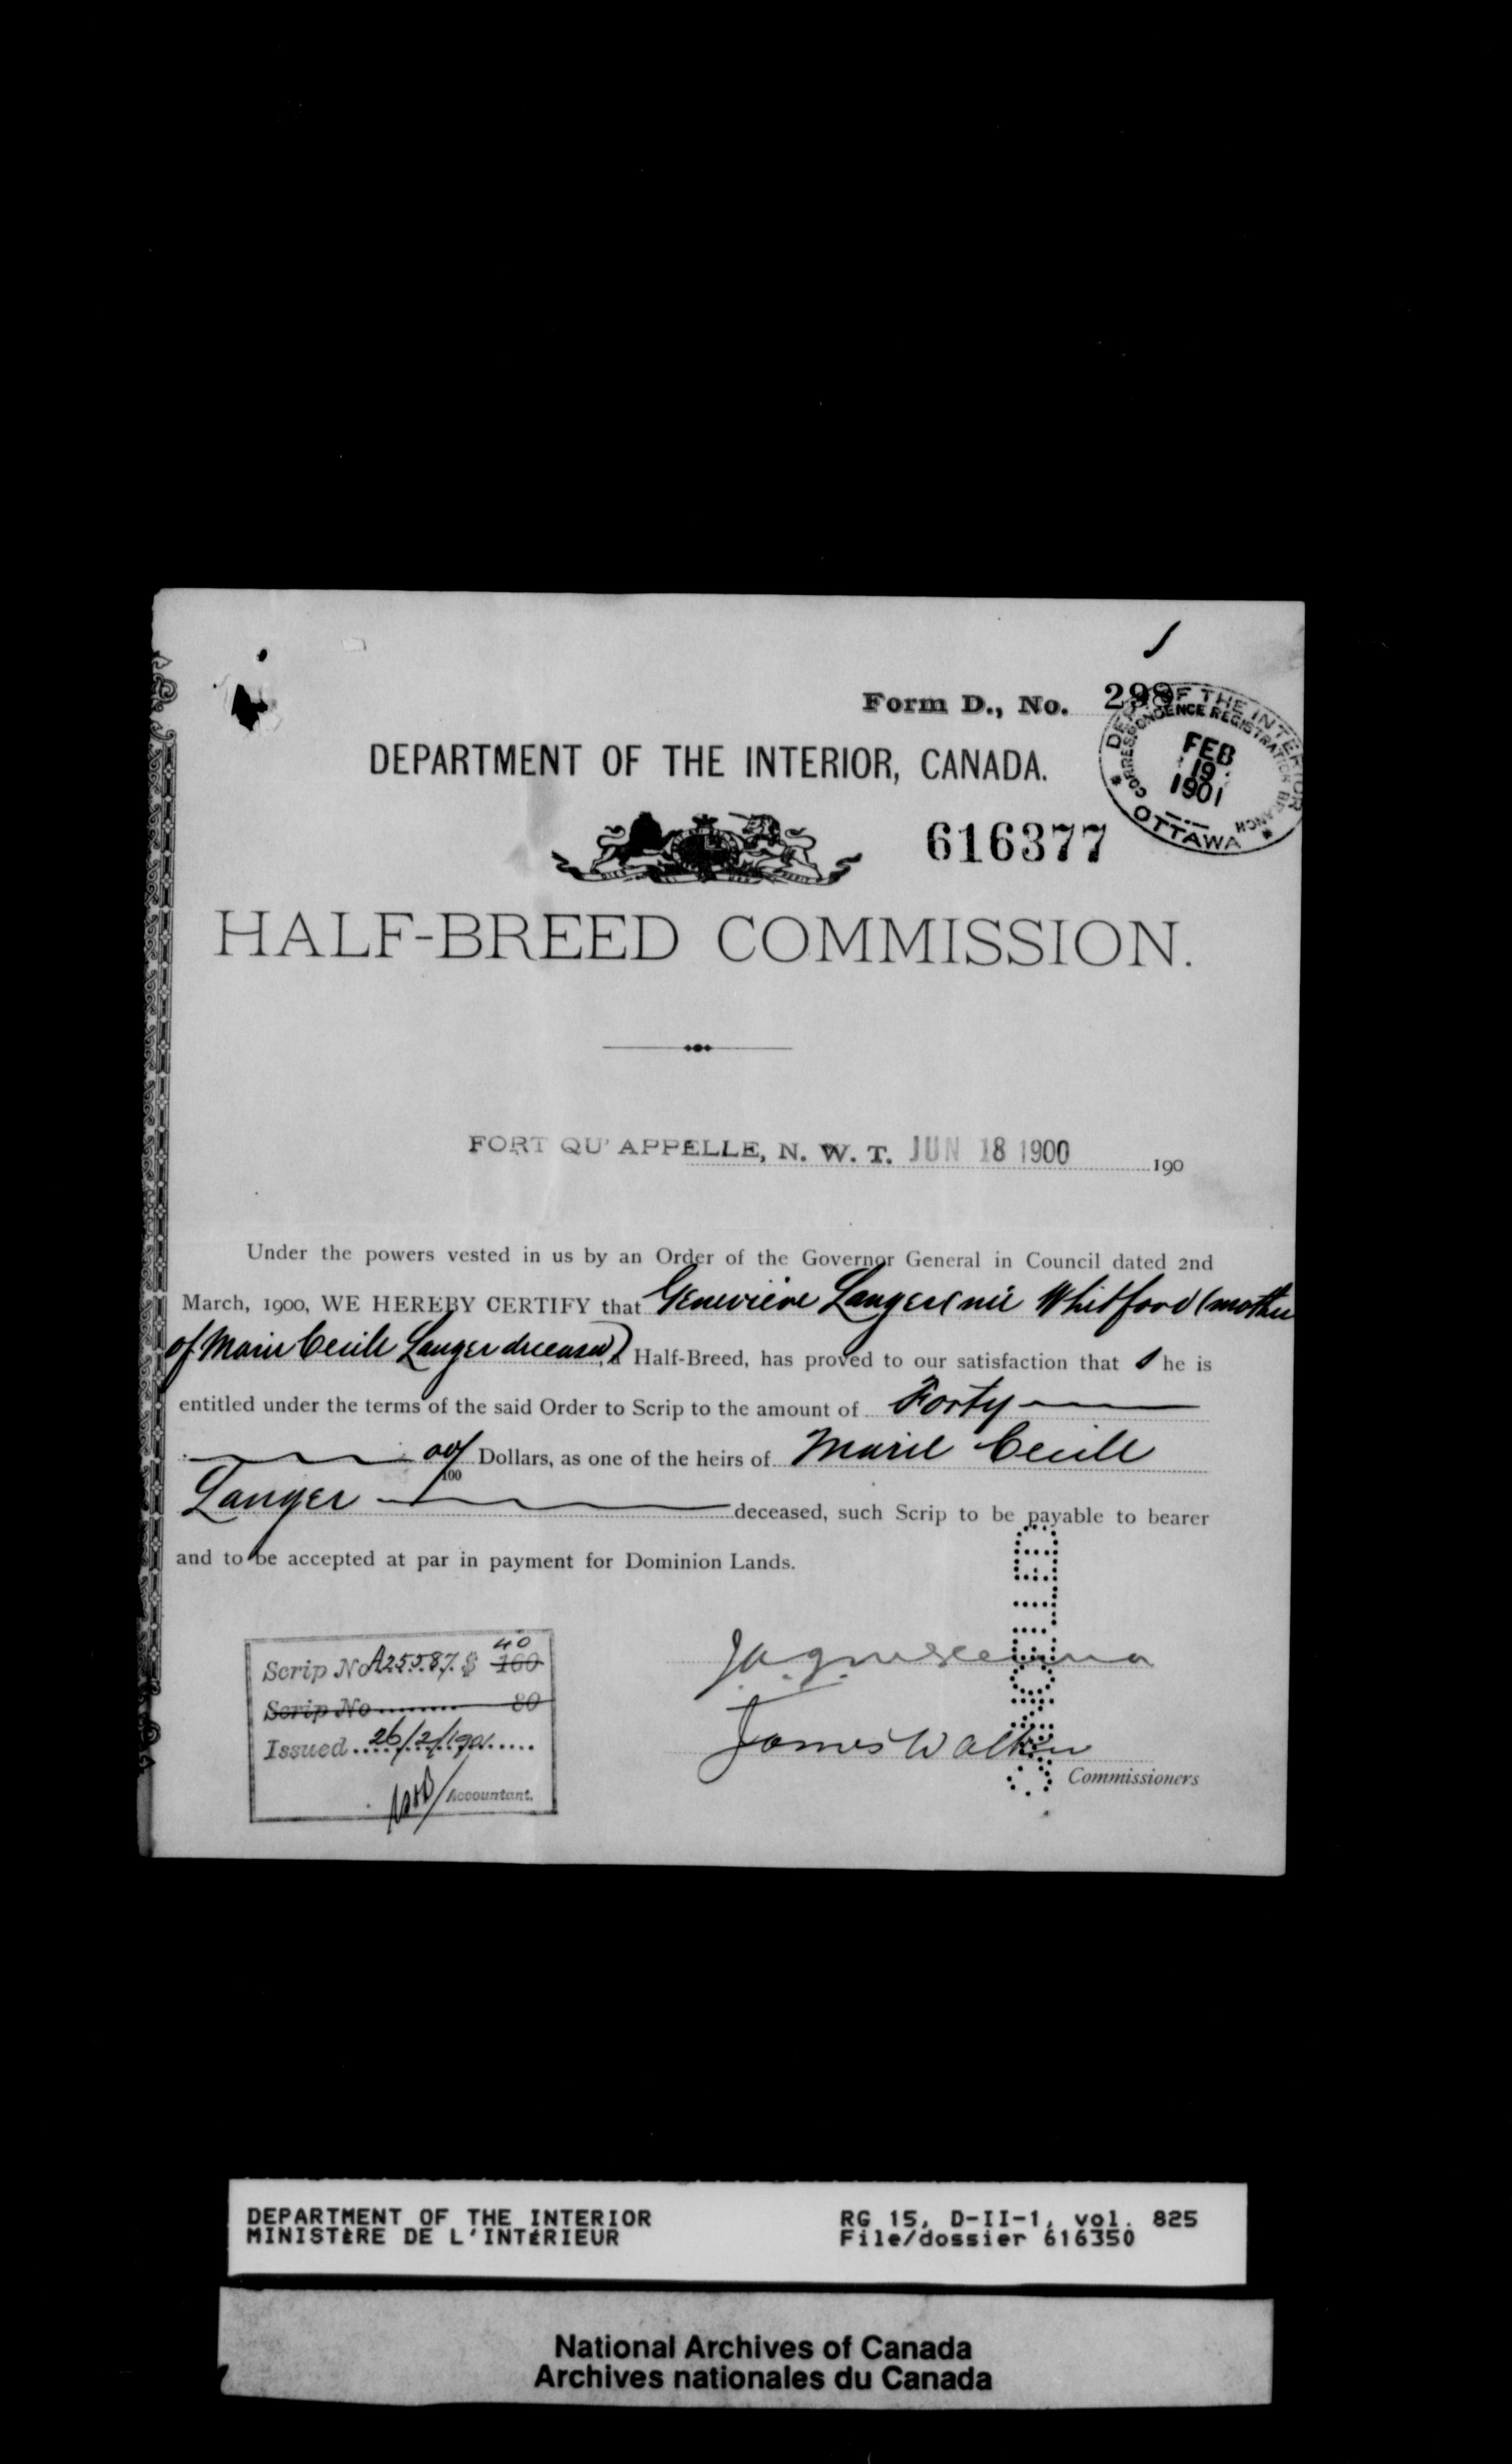 Form D., No. 298
DEPT OF THE INTERIOR
CORRESPONDENCE REGISTRATION BRANCH
FEB
19
1901
OTTAWA
DEPARTMENT OF THE INTERIOR, CANADA.
616377
HALF-BREED COMMISSION.
FORT QU'APPELLE, N. W. T. JUN 18 1900 190
Under the powers vested in us by an Order of the Governor General in Council dated 2nd
March, 1900, WE HEREBY CERTIFY that Genevieve Langer (née Whitford (mother
of Marie Cecile Langer deceased), a Half-Breed, has proved to our satisfaction that She is
entitled under the terms of the said Order to Scrip to the amount of Forty
00/100 Dollars, as one of the heirs of Marie Cecile
Langer deceased, such Scrip to be payable to bearer
and to be accepted at par in payment for Dominion Lands.
40
Scrip No A25587 $ 160
Scrip No 80
Issued 26/2/1901
Accountant.
James Walker
Commissioners
DEPARTMENT OF THE INTERIOR
MINISTÈRE DE L'INTÉRIEUR
RG 15, D-II-1, vol. 825
File/dossier 616350
National Archives of Canada
Archives nationales du Canada